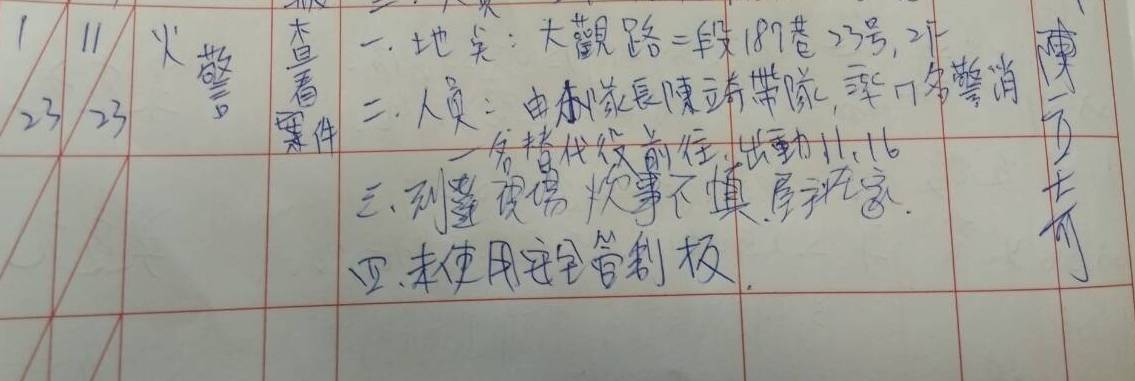 1 23
11 23
火警
查看案件
一、地点：大觀路二段187巷23号,2F
二、人員：由小隊長陳立奇帶隊,率7名警消
一名替代役前往,出動11、16
三、到達現場 炊事不慎,屋主在家.
四、未使用安全管制板.
陳立奇